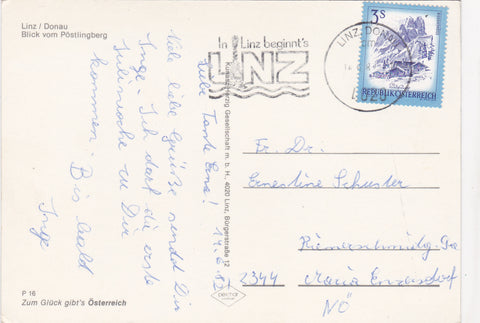 Linz / Donau
Blick vom Pöstlingberg
In Linz beginnt's
LINZ
LINZ/DONAU
4020
3 S
REPUBLIK ÖSTERREICH
Liebe Tante Erna!
14.6.82
Viele liebe Grüße sendet Dir
Inge. Ich darf die erste
Juliwoche zu Dir
kommen. Bis bald
Inge
Fr. Dr.
Ernestine Schuster
Riemerschmidg.
2344 Maria Enzersdorf
NÖ
Gesellschaft m. b. H., 4020 Linz, Bürgerstraße 12
P 16
Zum Glück gibt's Österreich